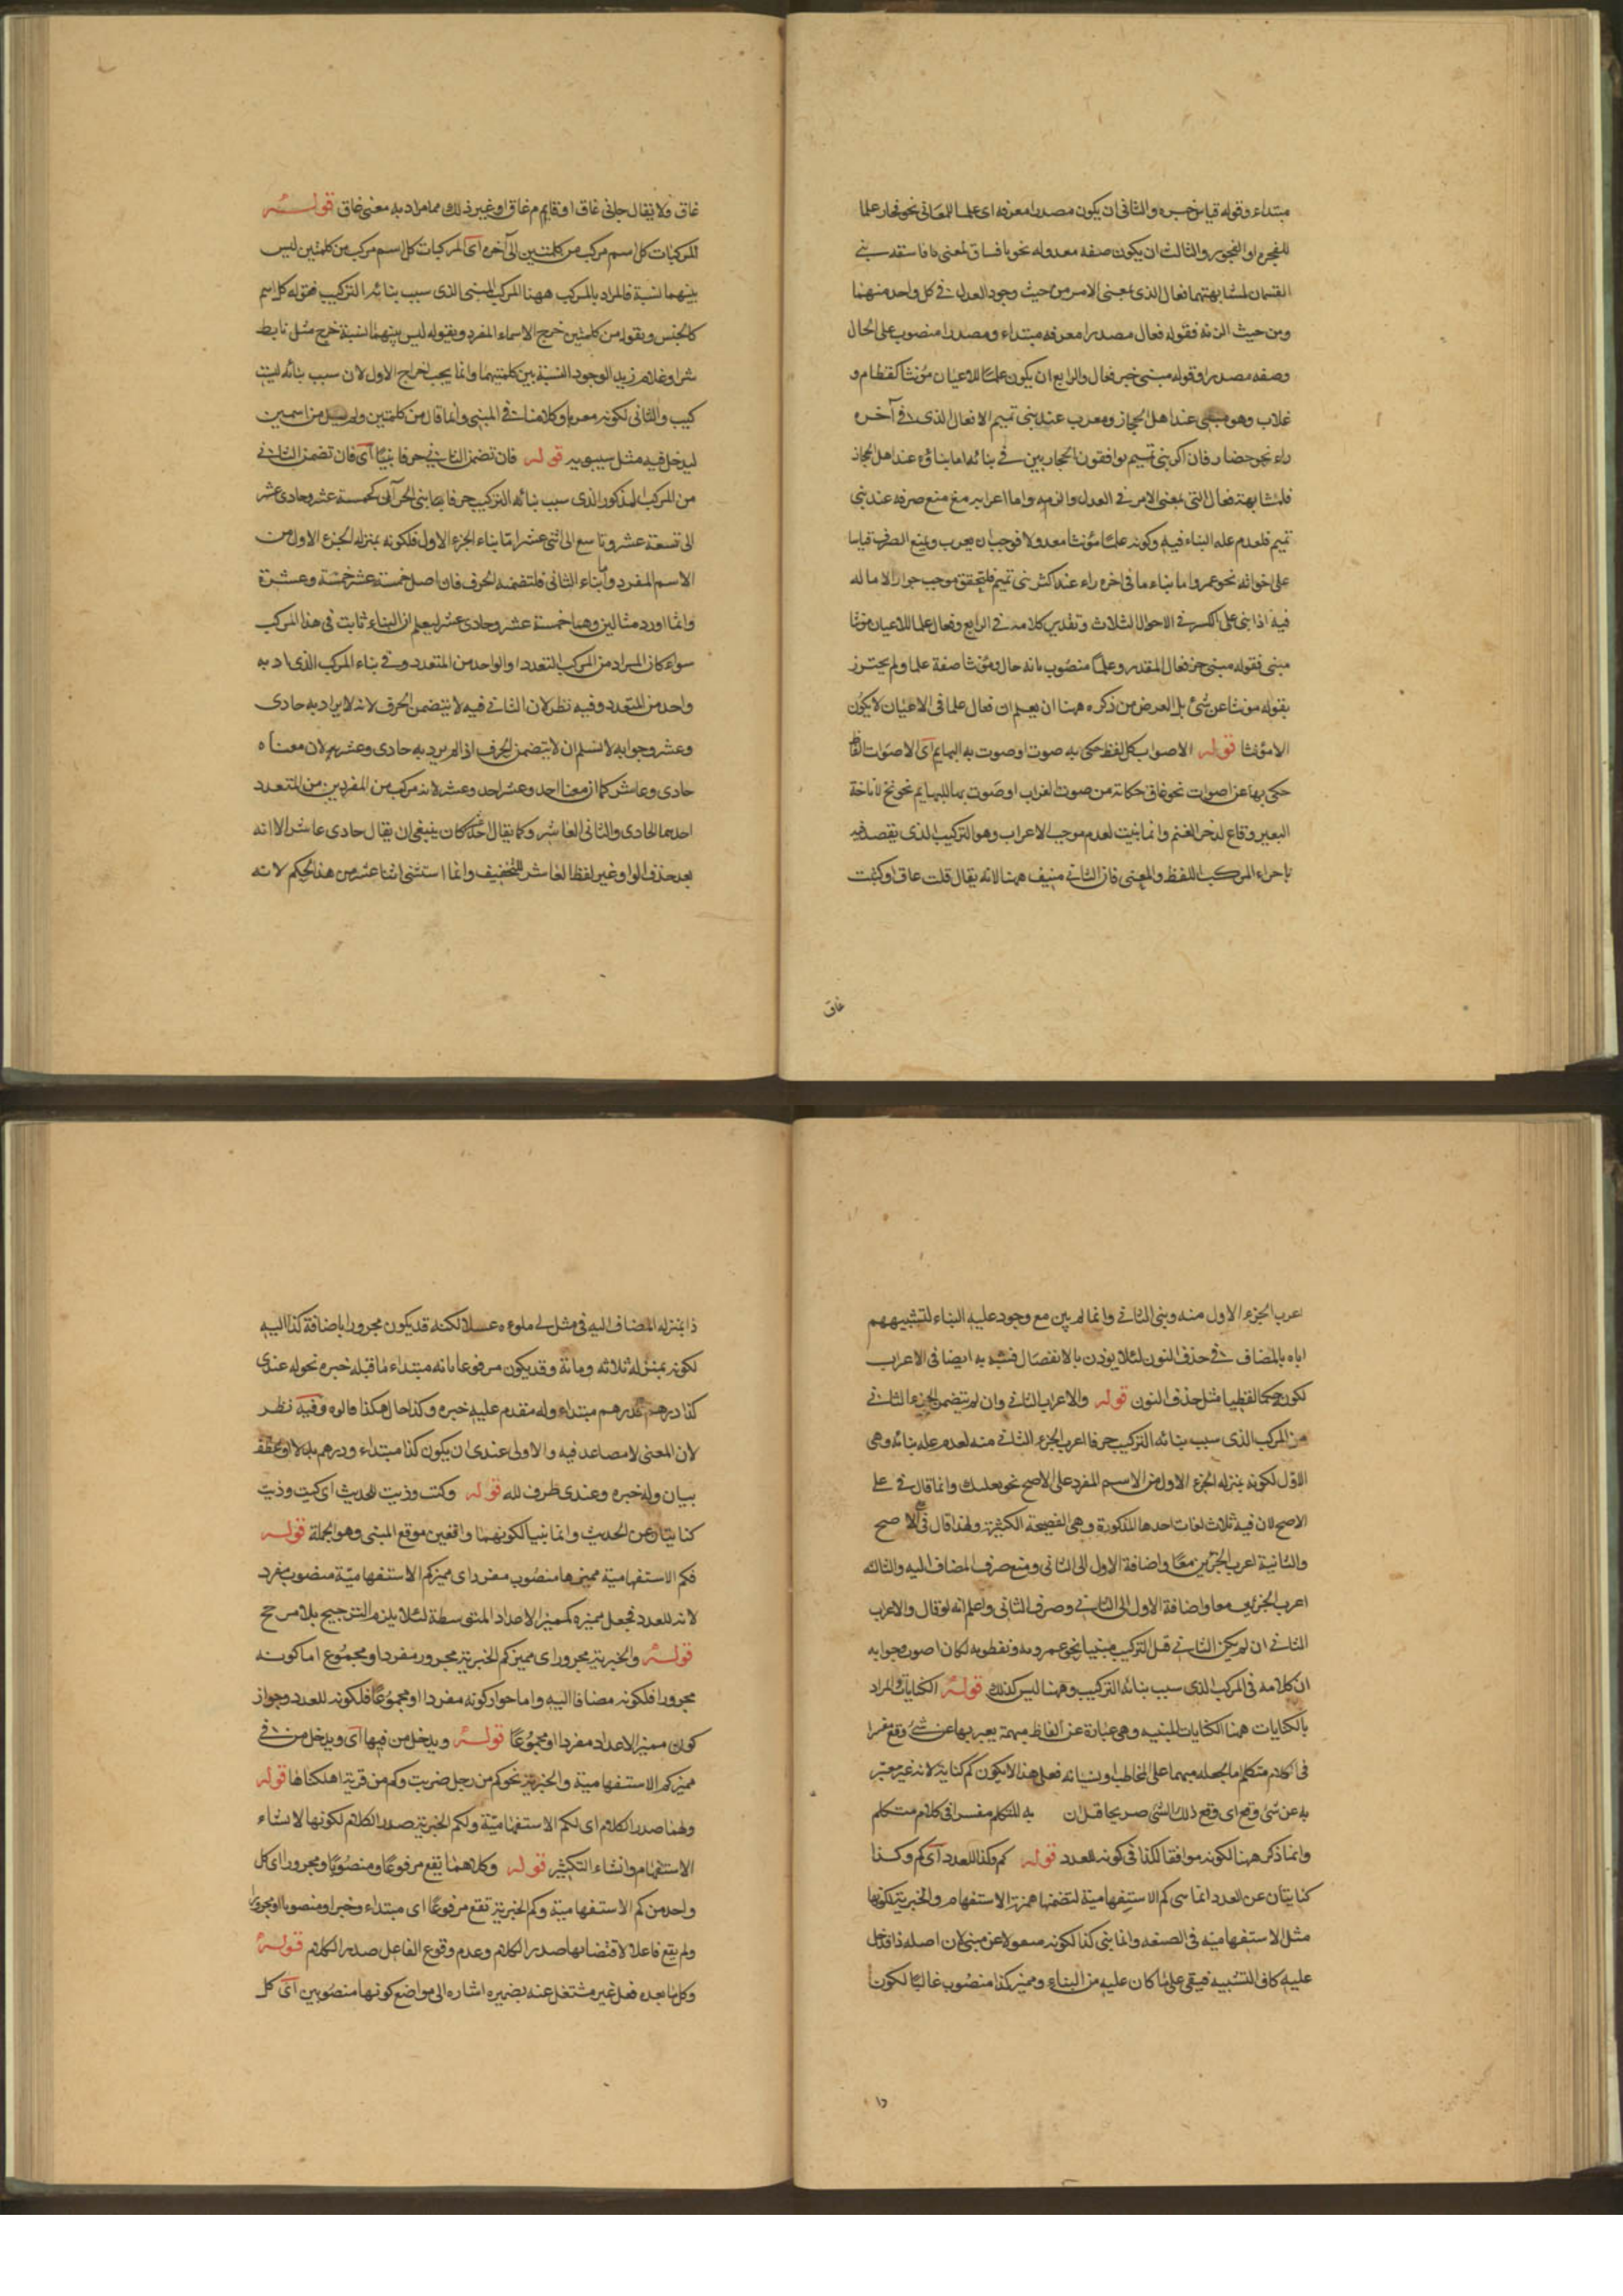 مبتداء وقوله قياس خبره والثانى ان يكون مصدرا معرفه اى علما للمعانى نحو فجار علما
للفجره او الفجور والثالث ان يكون صفه معدوله نحو يا فساق لمعنى يا فاسقه بنى
القسمان لمشابهتهما فعال الذى بمعنى الامر من حيث وجود العدل فى كل واحد منهما
ومن حيث الزنه فقوله فعال مصدرا معرفه مبتداء ومصدرا منصوب على الحال
وصفه مصدرا وقوله مبنى خبر فعال والرابع ان يكون علما للاعيان مؤنثا كقطام و
غلاب وهو مبنى عند اهل الحجاز ومعرب عند بنى تميم الا فعال الذى فى آخره
راء نحو حضار فان اكثر بنى تميم يوافقون الحجازيين فى بنائه اما بناؤه عند اهل الحجاز
فلمشابهته فعال التى بمعنى الامر فى العدل والزنه واما اعرابه مع منع صرفه عند بنى
تميم فلعدم علة البناء فيه وكونه علما مؤنثا معدولا فوجب ان يعرب ويمنع الصرف قياسا
على اخواته نحو عمر واما بناء ما فى اخره راء عند اكثر بنى تميم فلتحقق موجب جواز الاماله
فيه اذا بنى على الكسر فى الاحوال الثلاث وتقدير كلامه فى الرابع وفعال علما للاعيان مونثا
مبنى فقوله مبنى خبر فعال المقدر وعلما منصوب بانه حال ومؤنثا صفة علما ولم يحترز
بقوله مونثا عن شئ بل الغرض من ذكره ههنا ان يعلم ان فعال علما فى الاعيان لا يكون
الا مؤنثا قوله الاصوات كل لفظ حكى به صوت او صوت به البهايم اى الاصوات الفاظ
حكى بها عن اصوات نحو غاق حكاية من صوت الغراب او صوت بها للبهايم نحو نخ لاناخة
البعير وقاع لزجر الغنم وانما بنيت لعدم موجب الاعراب وهو التركيب الذى يقصد فيه
باجراء المركب اللفظ والمعنى فان الثانى منتف ههنا لانه يقال قلت غاق او كتبت
غاق
غاق فلا يقال جانى غاق او قايم م غاق او غير ذلك مما مراد به معنى غاق قوله
المركبات كل اسم مركب من كلمتين الى آخره اى المركبات كل اسم مركب من كلمتين ليس
بينهما نسبة فالمراد بالمركب ههنا المركب المبنى الذى سبب بنائه التركيب فقوله كل اسم
كالجنس وبقوله من كلمتين خرج الاسماء المفرد وبقوله ليس بينهما نسبة خرج مثل تابط
شرا وغلام زيد لوجود النسبة بين كلمتيهما وانما يجب اخراج الاول لان سبب بنائه ليست
كيب والثانى لكونه معربا وكلامنا فى المبنى وانما قال من كلمتين ولم يقل من اسمين
ليدخل فيه مثل سيبويه قوله فان تضمن الثانى حرفا بنيا اى فان تضمن الثانى
من المركب المذكور الذى سبب بنائه التركيب حرفا بنى الجزآن كخمسة عشر وحادى عشر
الى تسعة عشر وتاسع الى اثنى عشر اما بناء الجزء الاول فلكونه بمنزله الجزء الاول من
الاسم المفرد واما بناء الثانى فلتضمنه الحرف فان اصل خمسة عشر خمسة وعشرة
وانما اورد مثالين وهما خمسة عشر وحادى عشر ليعلم ان البناء ثابت فى هذا المركب
سواء كان المراد من المركب المتعدد او الواحد من المتعدد وفى بناء المركب الذى اد به
واحد من المتعدد وفيه نظر لان الثانى فيه لا يتضمن الحرف لانه لا يراد به حادى
وعشر وجوابه لا نسلم ان لا يتضمن الحرف اذ لم يرد به حادى وعشر لان معناه
حادى وعاشر كما ان معنا احد وعشر احد وعشر لانه مركب من المفردين من المتعدد
احدهما الحادى والثانى العاشر وكما يقال احد عشر كان ينبغى ان يقال حادى عاشر الا انه
بعد حذف الواو غير لفظ العاشر للتخفيف وانما استثنى اثنا عشر من هذا الحكم لانه
اعرب الجزء الاول منه وبنى الثانى وانما لم يبن مع وجود عليه البناء لتشبيههم
اياه بالمضاف فى حذف النون لئلا يوذن بالانفصال فشبه به ايضا فى الاعراب
لكون حكما لفظيا مثل حذف النون قوله والا اعراب الثانى وان لم يتضمن الجزء الثانى
من المركب الذى سبب بنائه التركيب حرفا اعرب الجزء الثانى منه لعدم عله بنائه وهى
الاول لكونه بمنزله الجزء الاول من الاسم المفرد على الاصح نحو بعلبك وانما قال فى على
الاصح لان فيه ثلاث لغات احدها المذكورة وهى الفصيحة الكثيرة ولهذا قال فى الاصح
والثانية اعراب الجزئين معا واضافة الاول الى الثانى ومنع صرف المضاف اليه والثالثه
اعرب الجزئين معا واضافة الاول الى الثانى وصرف الثانى واعلم انه لو قال والا اعرب
الثانى ان لم يكن الثانى قبل التركيب مبنيا نحو عمرويه ونفطويه لكان اصوب وجوابه
ان كلامه فى المركب الذى سبب بنائه التركيب وههنا ليس كذلك قوله الكنايات والمراد
بالكنايات ههنا الكنايات المبنيه وهى عبارة عن الفاظ مبهمة يعبر بها عن شئ وقع مفسرا
فى كلام متكلم اما لجعله مبهما على المخاطب او نسيانه فعلى هذا لا يكون كم كناية لانه غير معبر
به عن شى وقع اى وقع ذلك الشى صريحا قد ان به المتكلم مفسرا فى كلام متكلم
وانما ذكر ههنا لكونه موافقا لكذا فى كونه للعدد قوله كم وكذا للعدد اى كم وكذا
كنايتان عن العدد انما سمى كم الاستفهامية لتضمنها همزة الاستفهام والخبرية لكونها
مثل الاستفهاميه فى الصيغه وانما بنى كذا لكونه منقولا عن مبنى لان اصله ذا فدخل
عليه كاف التشبيه فبقى على ما كان عليه من البناء ومميز كذا منصوب غالبا لكون
ذا
ذا بمنزله المضاف اليه فى مثل لى ملوءه عسلا لكنه قد يكون مجرورا باضافة كذا اليه
لكونه بمنزله ثلاثه ومائة وقد يكون مرفوعا بانه مبتداء ما قبله خبره نحو له عندى
كذا درهم فدرهم مبتداء وله مقدم عليه خبره وكذا حال هكذا قالوه وفيه نظر
لان المعنى لا مصاعد فيه والاولى عندى ان يكون كذا مبتداء ودرهم بدلا او عطف
بيان وله خبره وعندى ظرف لله قوله وكيت وذيت للحديث اى كيت وذيت
كنايتان عن الحديث وانما بنيا لكونهما واقعين موقع المبنى وهو الجملة قوله
فكم الاستفهامية مميزها منصوب مفرد اى مميز كم الاستفهامية منصوب مفرد
لانه للعدد فجعل مميزه كمميز الاعداد المتوسطة لئلا يلزم الترجيح بلا مرجح
قوله والخبرية مجرور اى مميز كم الخبرية مجرور مفرد او مجموع اما كونه
مجرورا فلكونه مضافا اليه واما جواز كونه مفردا او مجموعا فلكونه للعدد وجواز
كون مميز الاعداد مفردا او مجموعا قوله ويدخل من فيها اى ويدخل من فى
مميز كم الاستفهامية والخبرية نحو كم من رجل ضربت وكم من قرية اهلكناها قوله
ولهما صدر الكلام اى لكم الاستفهامية ولكم الخبرية صدر الكلام لكونها لانشاء
الاستفهام وانشاء التكثير قوله وكلاهما يقع مرفوعا ومنصوبا ومجرورا اى كل
واحد من كم الاستفهامية وكم الخبرية تقع مرفوعا اى مبتداء وخبرا ومنصوبا ومجرورا
ولم يقع فاعلا لاقتضائها صدر الكلام وعدم وقوع الفاعل صدر الكلام قوله
وكل ما بعده فعل غير مشتغل عنه بضميره اشاره الى مواضع كونها منصوبين اى كل